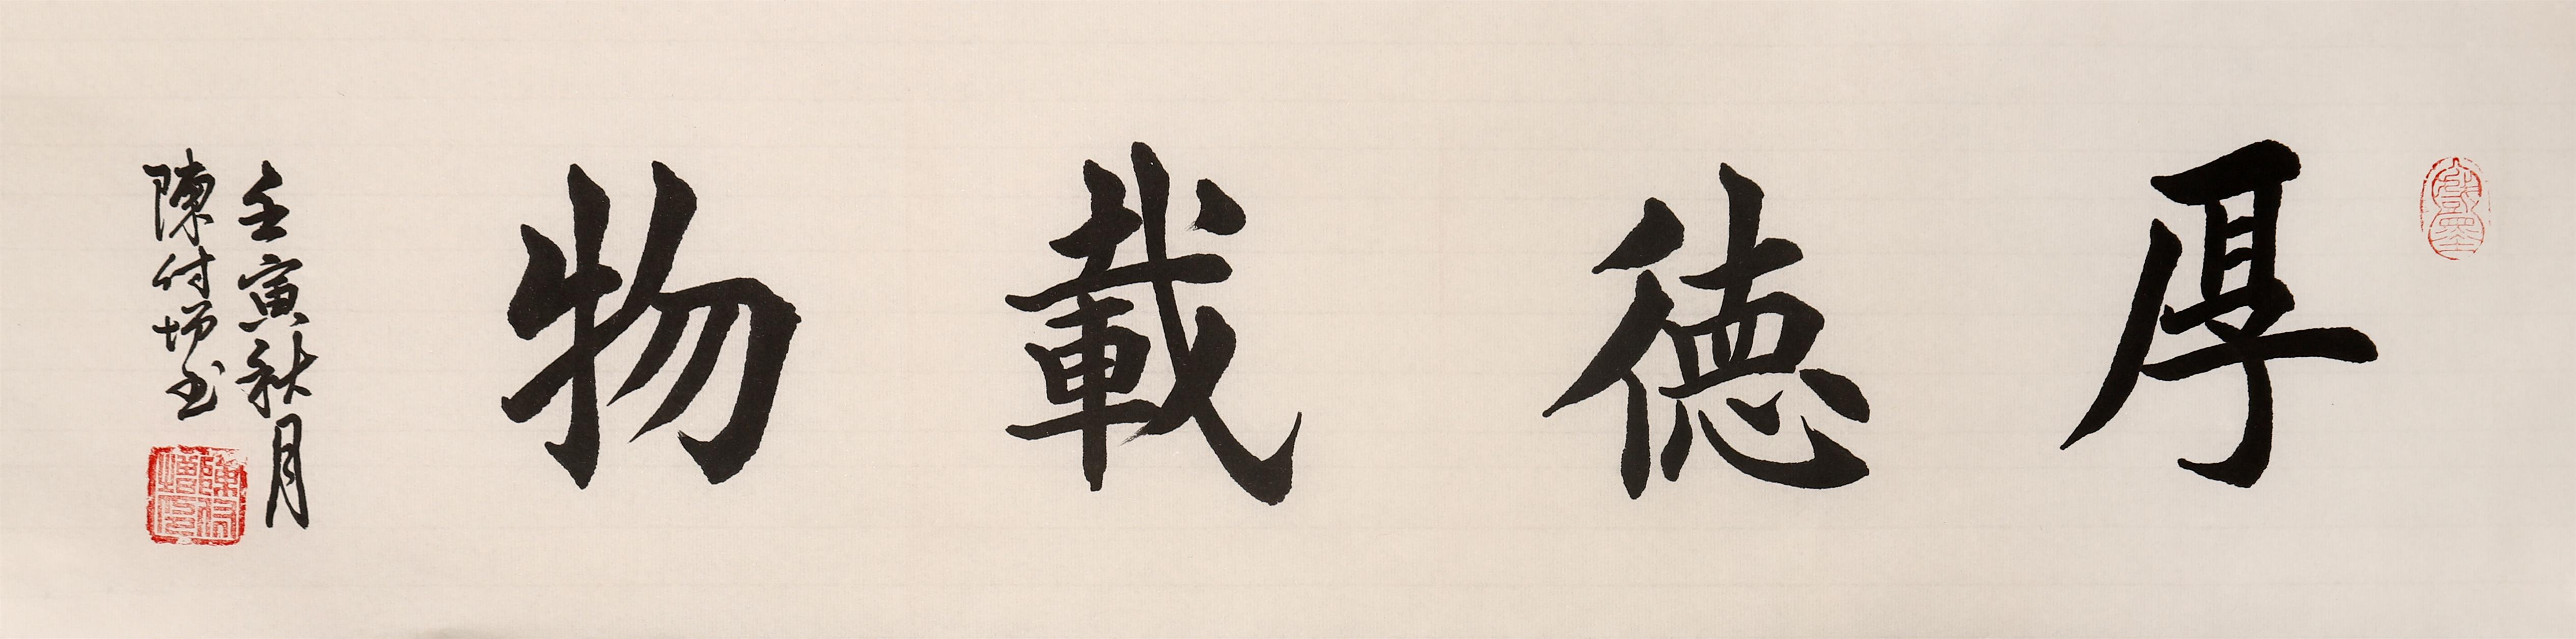 厚德載物
壬寅秋月
陳付增书